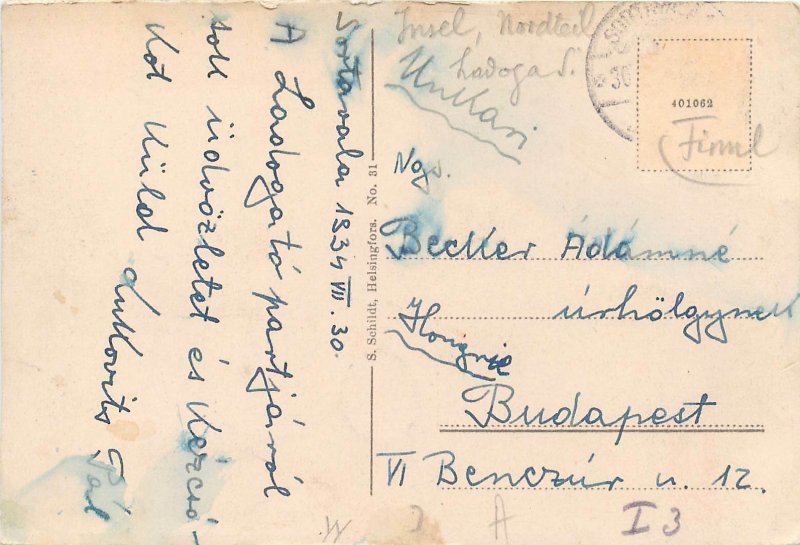 Sortavala 1934 VII. 30.
A Ladogató partjáról
sok üdvözletet és kézcsó-
kot küld Lukovits Pál
S. Schildt, Helsingfors. No. 31
Insel, Nordteil
Ladoga S.
30
401062
Finnl
Nags.
Becker Ádámné
úrhölgynek
Hongrie
Budapest
VI Benczúr u. 12.
W J A I3